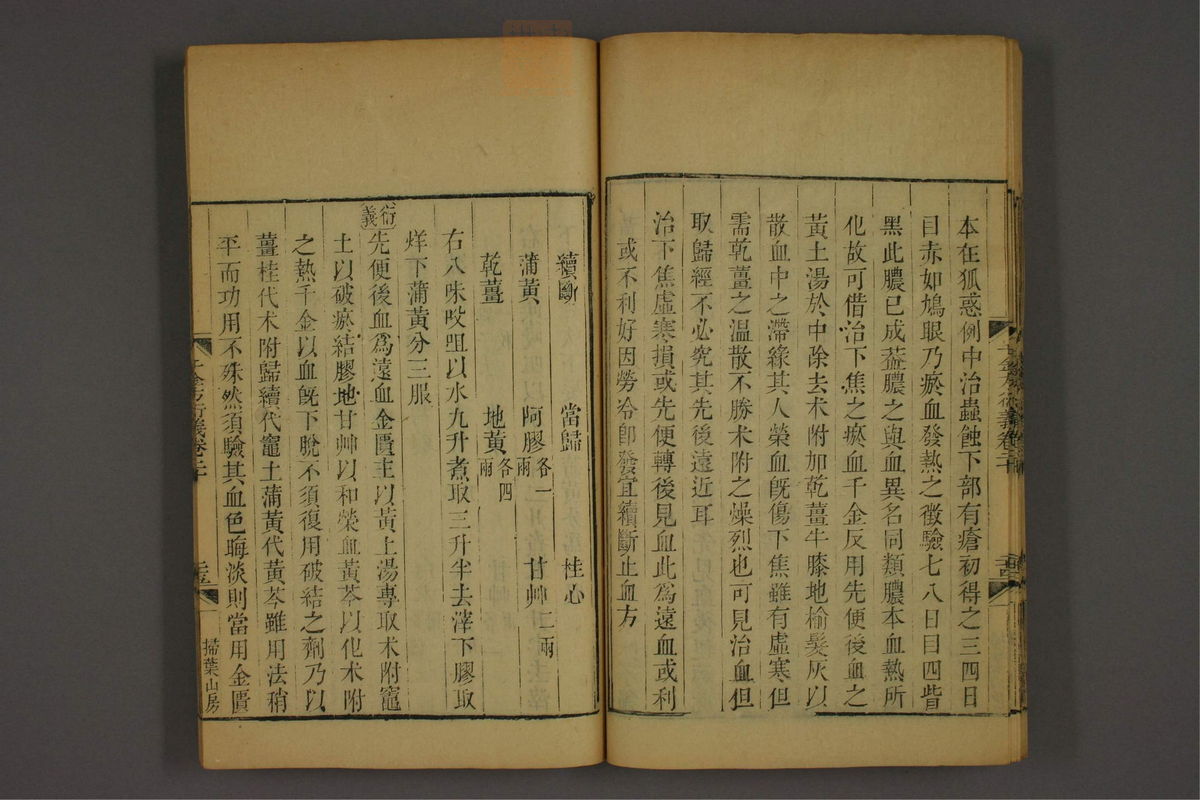 本在狐惑例中治蟲蝕下部有瘡初得之三四日
目赤如鳩眼乃瘀血發熱之徵驗七八日目四眥
黑此膿已成葢膿之與血異名同類膿本血熱所
化故可借治下焦之瘀血千金反用先便後血之
黃土湯於中除去术附加乾薑牛膝地榆髮灰以
散血中之滯緣其人榮血旣傷下焦雖有虛寒但
需乾薑之温散不勝术附之燥烈也可見治血但
取歸經不必究其先後遠近耳
治下焦虛寒損或先便轉後見血此爲遠血或利
或不利好因勞冷卽發宜續斷止血方
續斷 當歸 桂心
蒲黃 阿膠各一兩 甘艸二兩
乾薑 地黃各四兩
右八味㕮咀以水九升煮取三升半去滓下膠取
烊下蒲黃分三服
衍義先便後血爲遠血金匱主以黃土湯專取术附竈
土以破瘀結膠地甘艸以和榮血黃芩以化术附
之熱千金以血旣下脫不須復用破結之劑乃以
薑桂代术附歸續代竈土蒲黃代黃芩雖用法稍
平而功用不殊然須驗其血色晦淡則當用金匱
千金方衍義卷二十
掃葉山房